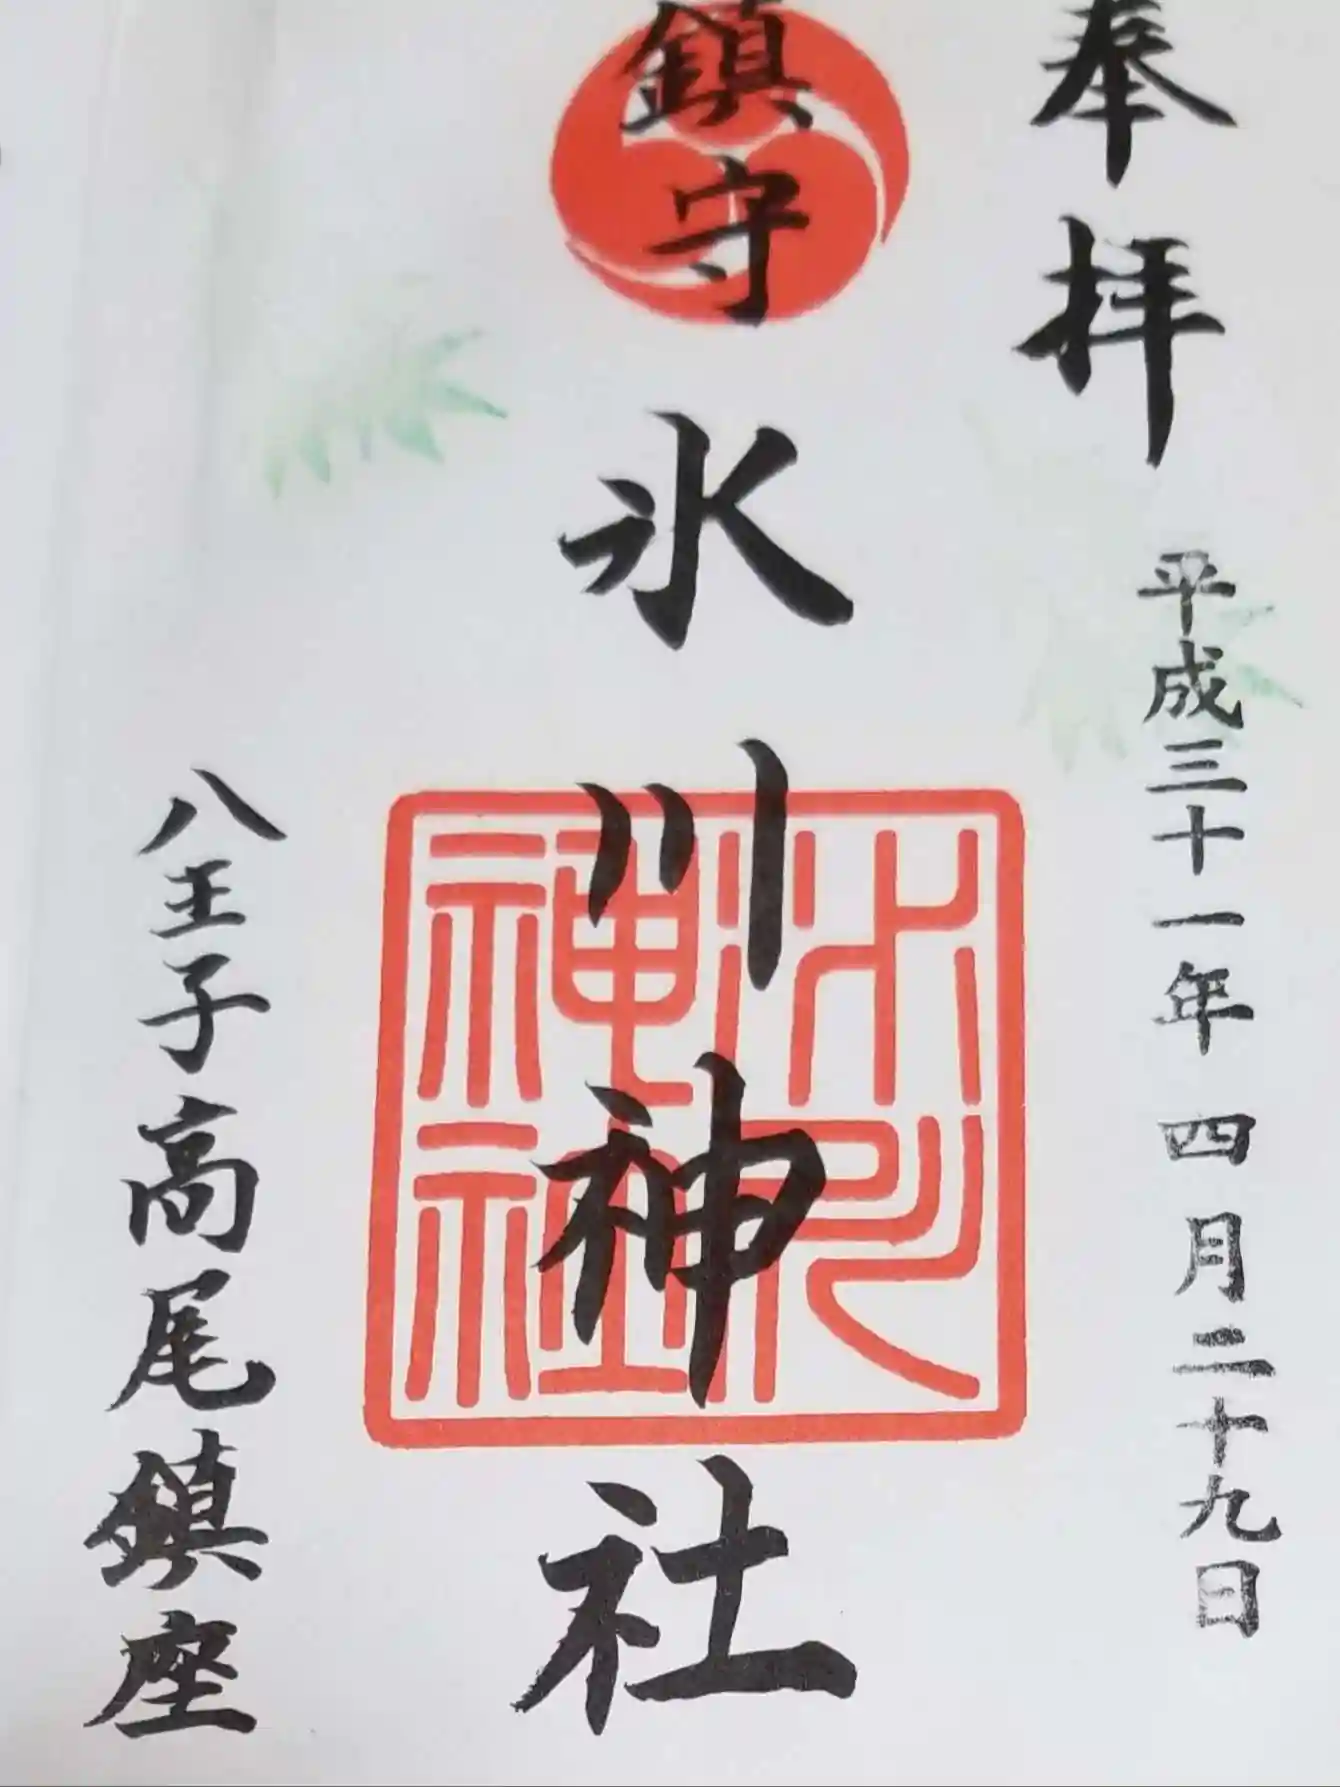 奉拝
平成三十一年四月二十九日
鎮守
氷川神社
氷川神社
八王子高尾鎮座